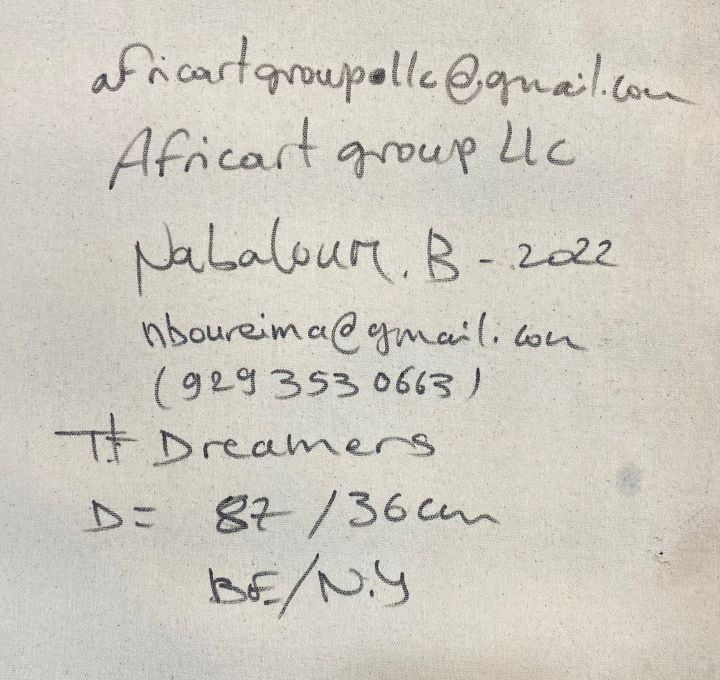 africartgroupllc@gmail.com
Africart group LLC
Nabaloum. B - 2022
nboureima@gmail.com
(929 353 0663)
Tt Dreamers
D= 87 / 36 cm
BE/N.Y